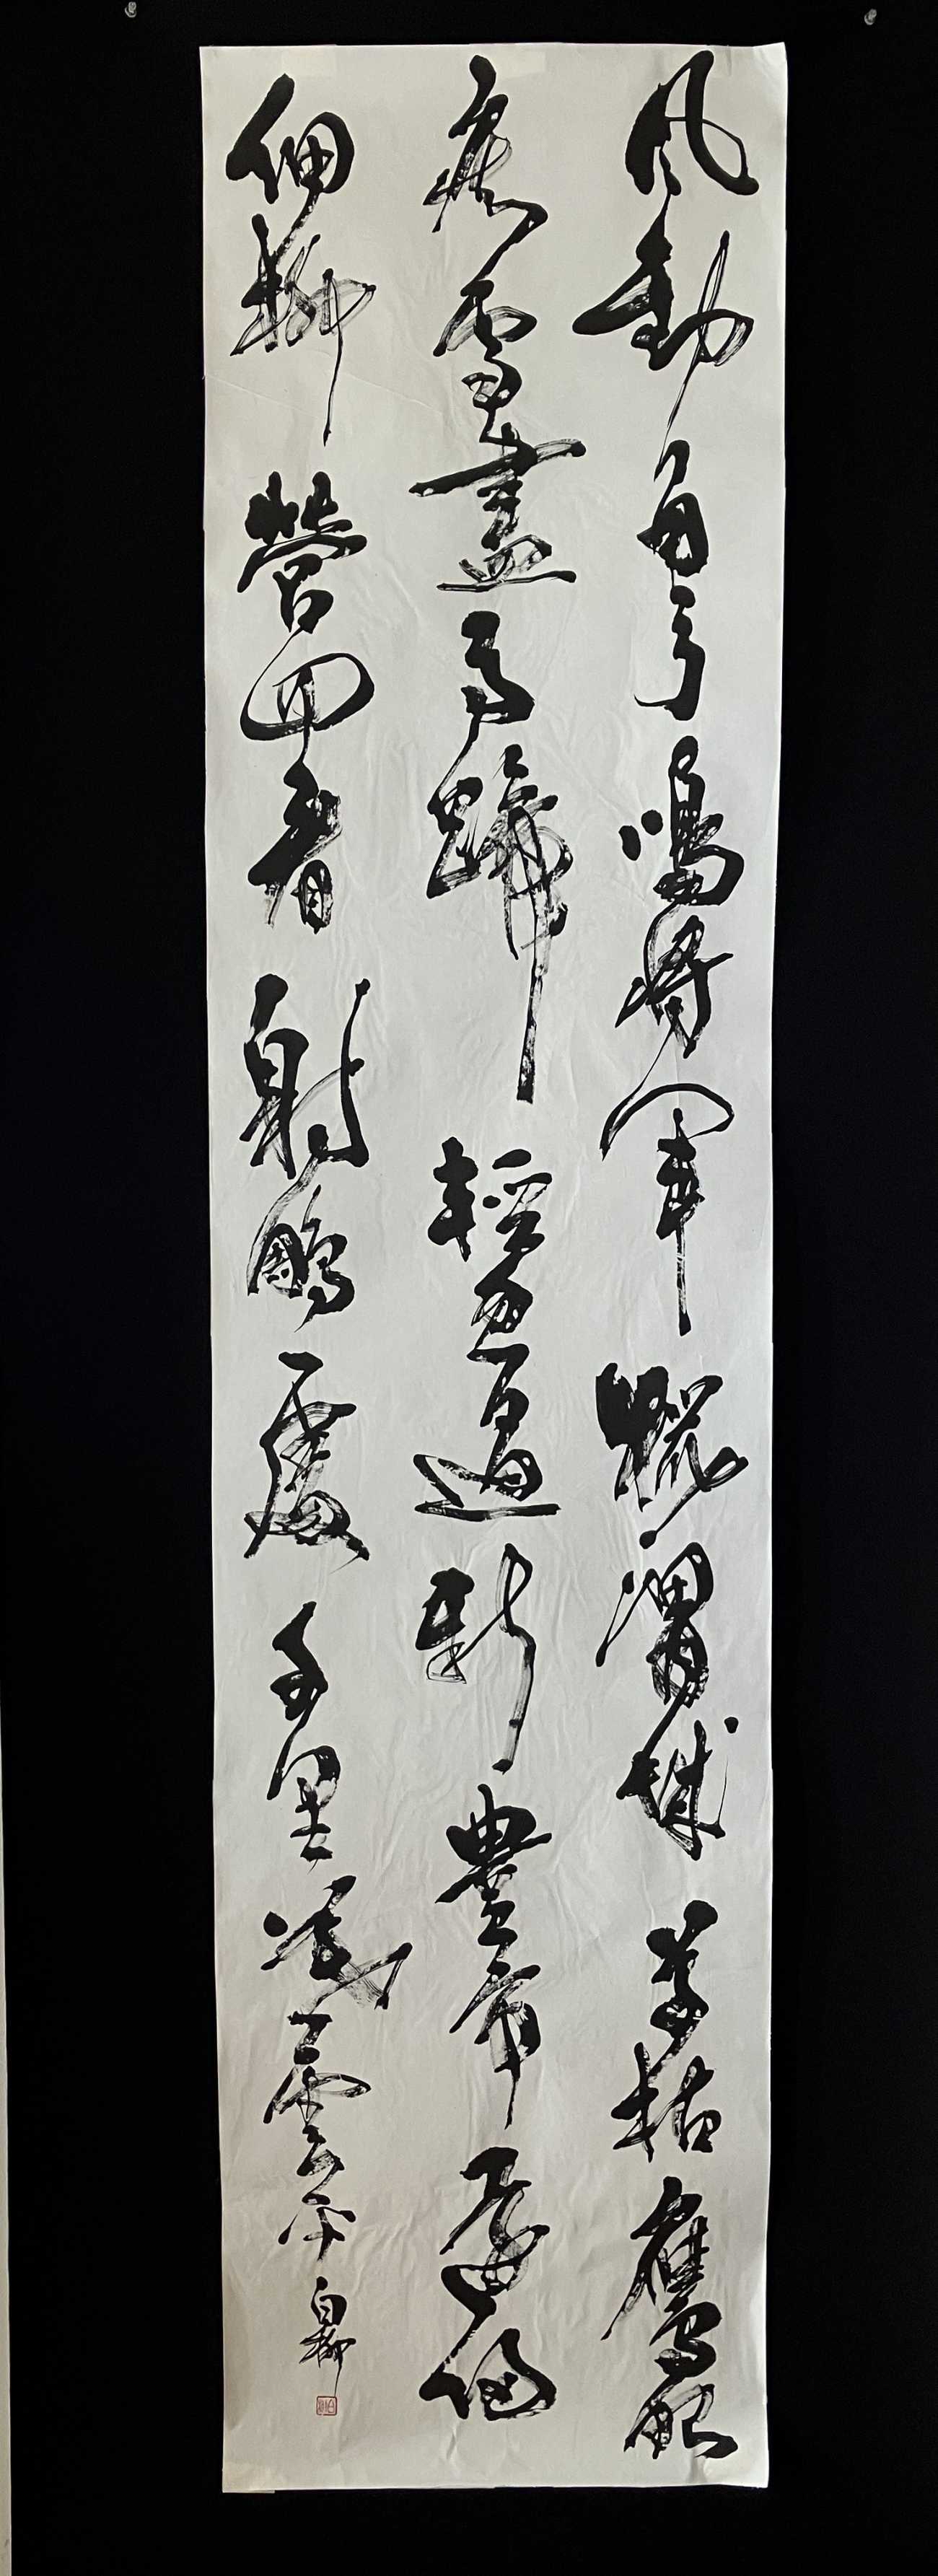 風勁角弓鳴將軍獵渭城草枯鷹眼
疾雪盡馬蹄輕忽過新豐市還歸
細柳營回看射鵰處千里暮雲平
白柳